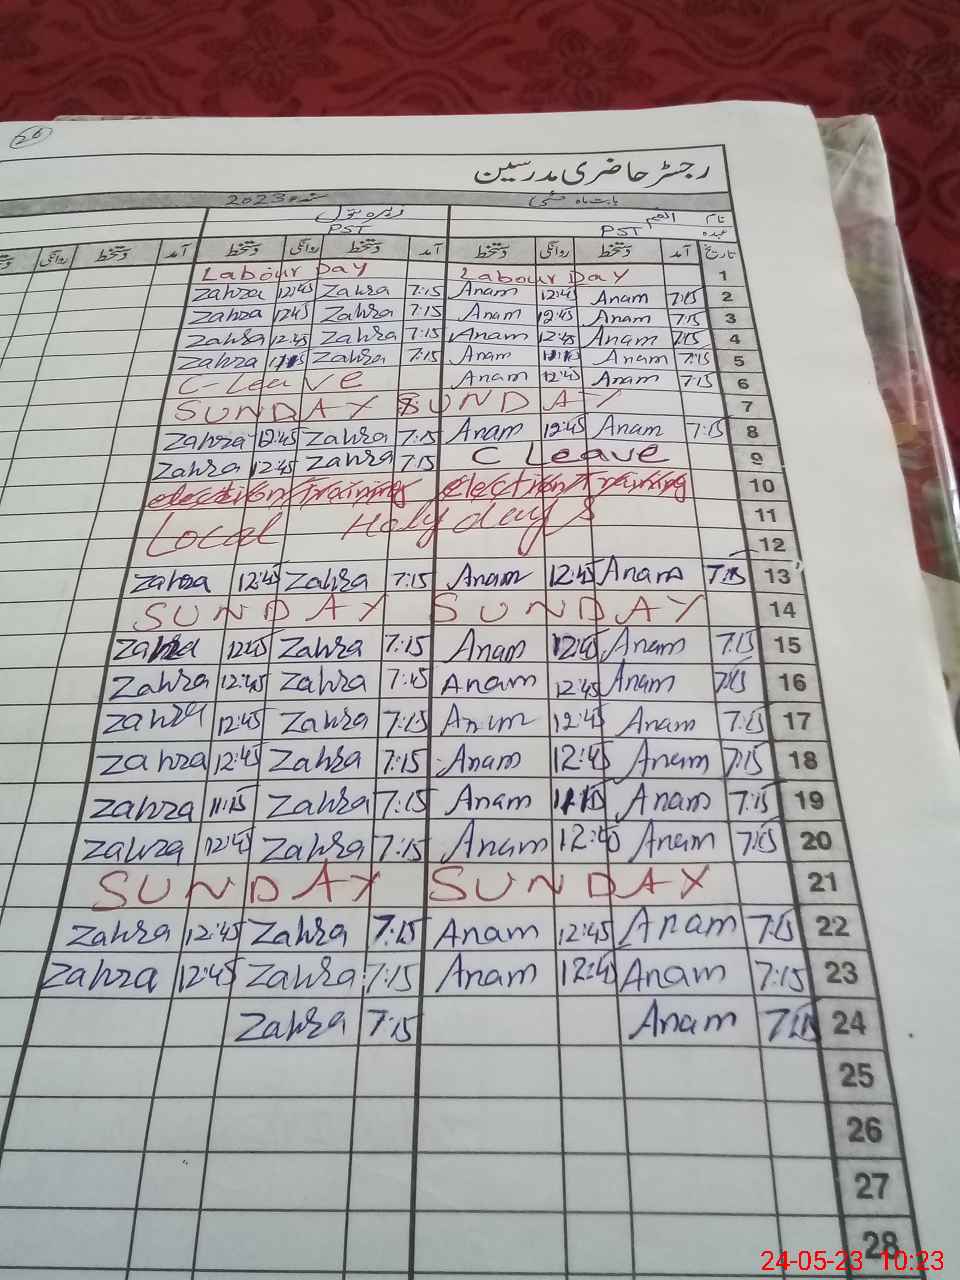 26
رجسٹر حاضری مدرسین
بابت ماہ مئی سنہ 2023
نام
عہدہ PST PST
تاریخ آمد دستخط روانگی دستخط آمد دستخط روانگی دستخط آمد دستخط روانگی
Labour Day Labour Day 1
Zahra 12:45 Zahra 7:15 Anam 12:45 Anam 7:15 2
Zahra 12:45 Zahra 7:15 Anam 12:45 Anam 7:15 3
Zahra 12:45 Zahra 7:15 Anam 12:45 Anam 7:15 4
Zahra Zahra 7:15 Anam Anam 7:15 5
C-Leave Anam 12:45 Anam 7:15 6
SUNDAY SUNDAY 7
Zahra 12:45 Zahra 7:15 Anam 12:45 Anam 7:15 8
Zahra 12:45 Zahra 7:15 C Leave 9
election training election Training 10
Local Holy days 11
12
Zahra 12:45 Zahra 7:15 Anam 12:45 Anam 7:15 13
SUNDAY SUNDAY 14
Zahra 12:45 Zahra 7:15 Anam 12:45 Anam 7:15 15
Zahra 12:45 Zahra 7:15 Anam 12:45 Anam 7:15 16
Zahra 12:45 Zahra 7:15 Anam 12:45 Anam 7:15 17
Zahra 12:45 Zahra 7:15 Anam 12:45 Anam 7:15 18
Zahra 11:15 Zahra 7:15 Anam 11:15 Anam 7:15 19
Zahra 12:45 Zahra 7:15 Anam 12:45 Anam 7:15 20
SUNDAY SUNDAY 21
Zahra 12:45 Zahra 7:15 Anam 12:45 Anam 7:15 22
Zahra 12:45 Zahra 7:15 Anam 12:45 Anam 7:15 23
Zahra 7:15 Anam 7:15 24
25
26
27
28
24-05-23 10:23